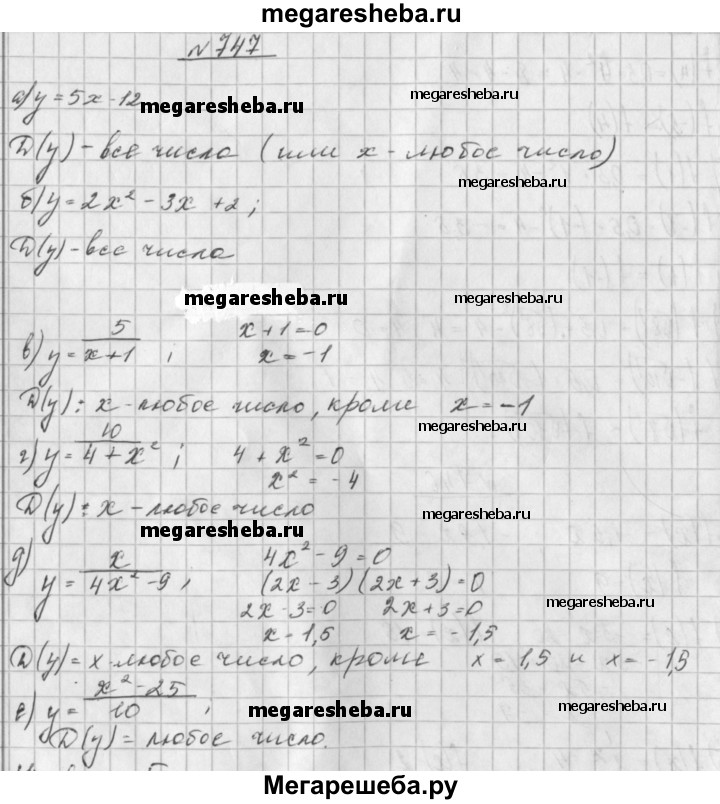 megaresheba.ru
№ 747
а) y = 5x - 12 megaresheba.ru megaresheba.ru
D(y) - все числа (или x - любое число)
megaresheba.ru
б) y = 2x² - 3x + 2;
D(y) - все числа
megaresheba.ru megaresheba.ru
в) y = 5/(x+1); x + 1 = 0
x = -1
D(y): x - любое число, кроме x = -1
megaresheba.ru
г) y = 10/(4 + x²); 4 + x² = 0
x² = -4
D(y): x - любое число
megaresheba.ru megaresheba.ru
д) y = x/(4x² - 9); 4x² - 9 = 0
(2x - 3)(2x + 3) = 0
2x - 3 = 0 2x + 3 = 0
megaresheba.ru
x - 1,5 x = -1,5
D(y) = x - любое число, кроме x = 1,5 и x = -1,5
е) y = (x² - 25)/10; megaresheba.ru megaresheba.ru
D(y) = любое число.
Мегарешеба.ру